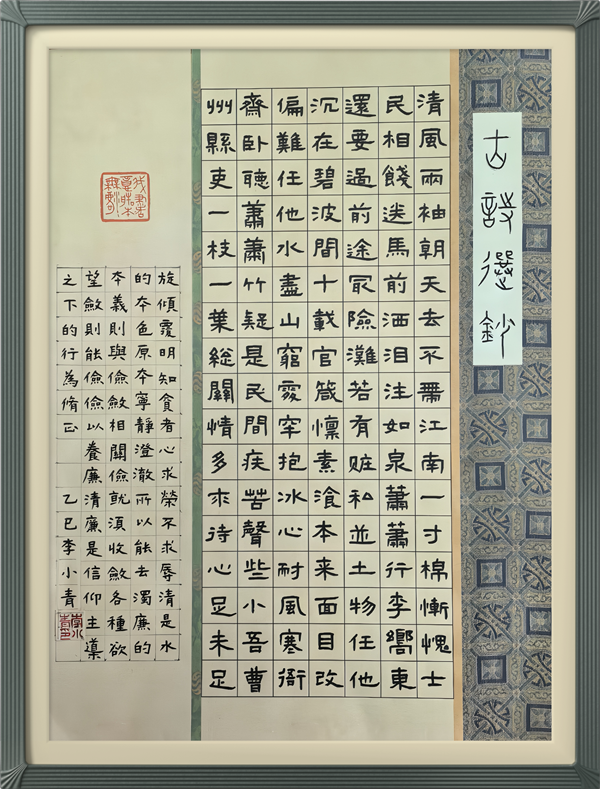 古詩選鈔
清風兩袖朝天去不帶江南一寸棉慚愧士
民相餞送馬前洒泪注如泉蕭蕭行李嚮東
還要過前途最險灘若有贓私並土物任他
沉在碧波間十載官箴懍素飡本来面目改
偏難任他水盡山窮處牢抱冰心耐風寒衙
齋卧聽蕭蕭竹疑是民間疾苦聲些小吾曹
州縣吏一枝一葉總關情多求待心足未足
旋傾覆明知貪者心求榮不求辱清是水
的本色原本寧靜澄澈所以能去濁廉的
本義則與儉斂相關儉就須收斂各種欲
望斂則能儉儉以養廉清廉是信仰主導
之下的行為脩正 乙巳李小青